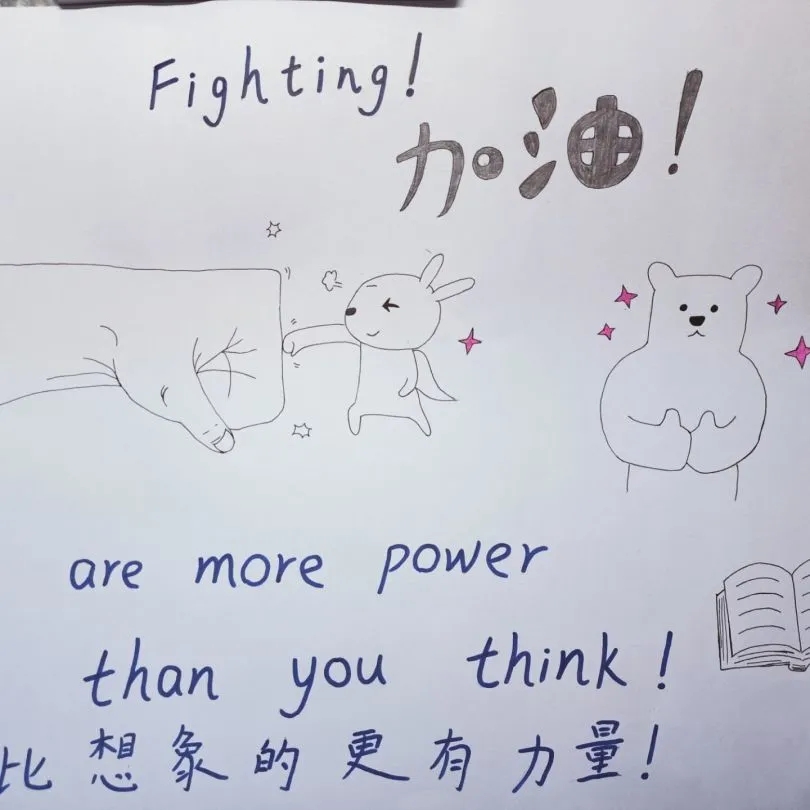 Fighting!
加油!
are more power
than you think!
比想象的更有力量!